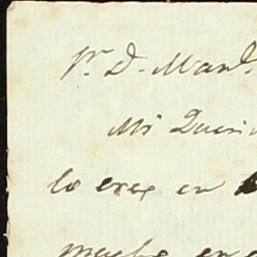 Sr. D. Manl.
Mi Queri
lo eres en
mucho en